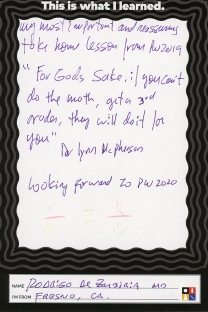 This is what I learned.
my most important and reassuring
take home lesson from PW2019
"For Gods Sake, if you can't
do the math, get a 3rd
grader, they will do it for
you"
Dr Lynn McPherson
Looking forward to PW2020
NAME RODRIGO DE ZUBIRIA MD
I'M FROM FRESNO, CA.